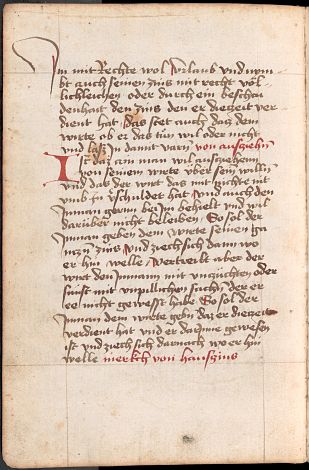 Im mit Rechte wol Vrlaub vnd nym-
bt auch seinen zins mit recht vol-
lichleichen oder durch ein beschai
denhait den zins den er dietzeit ver
dient hat das stet auch datz dem
wirte ob er das tun wil oder nicht
und lass In damit varn von ausziehn
Ist daz ain man wil ausziehenn
von seinem wirte vber sein willn
vnd das der wirt das mit nichte nit
vmb In verschuldet hat vnd auch den
Inman gernn bey Im behielt vnd wil
darüber nicht beleiben So sol der
Inman geben dem wirte seinen ga
nczn zins vnd ziech sich dann wo
er hin welle vertreibt aber der
wirt den Inmann mit vnzüchten oder
sunst mit vnpillichen sachn der er
ee nicht gewesst habe So sol der
Inman dem wirte gebn daz er dietzeit
verdient hat vnd er da Inne gewesen
ist vnd ziech sich darnach wo er hin
welle merkch von hauszins